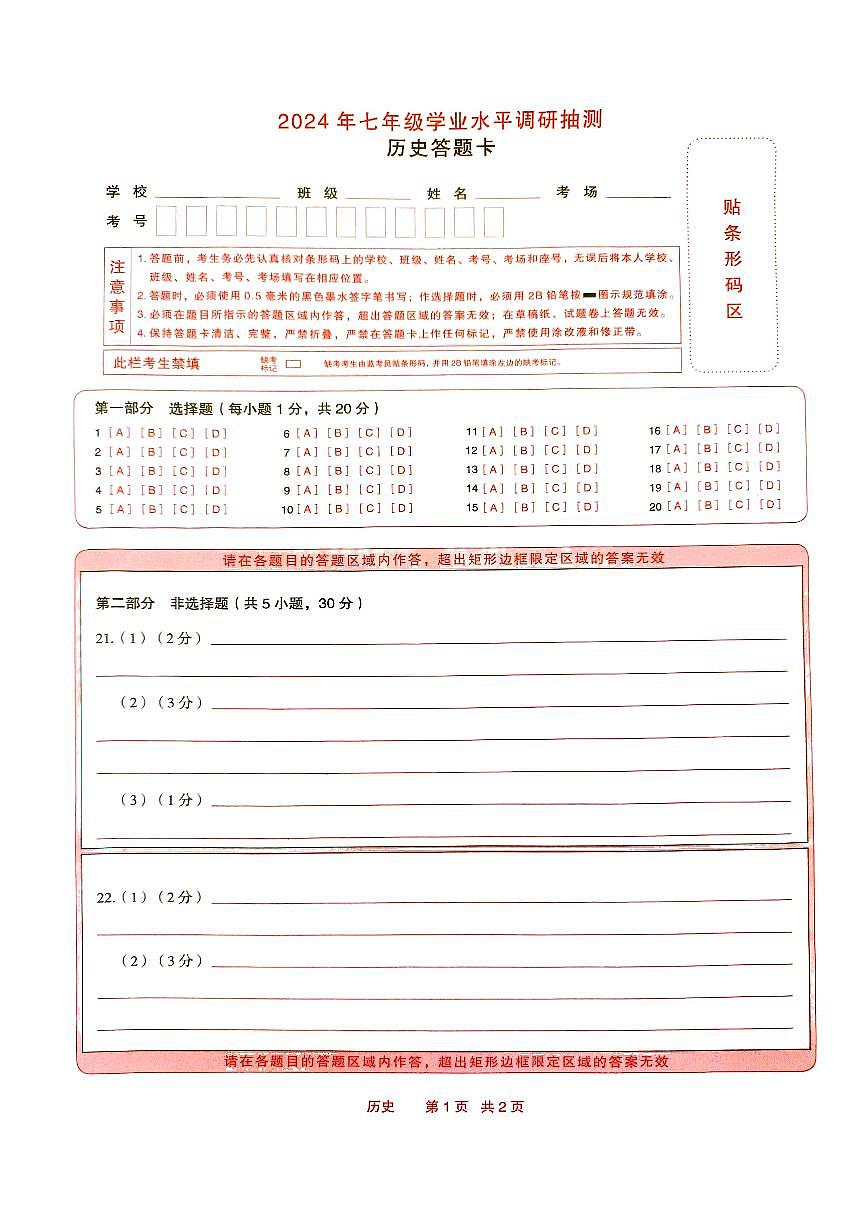 2024年七年级学业水平调研抽测
历史答题卡
学 校 班 级 姓 名 考 场
考 号
贴条形码区
注意事项
1.答题前，考生务必先认真核对条形码上的学校、班级、姓名、考号、考场和座号，无误后将本人学校、
班级、姓名、考号、考场填写在相应位置。
2.答题时，必须使用0.5毫米的黑色墨水签字笔书写；作选择题时，必须用2B铅笔按▬图示规范填涂。
3.必须在题目所指示的答题区域内作答，超出答题区域的答案无效；在草稿纸、试题卷上答题无效。
4.保持答题卡清洁、完整，严禁折叠，严禁在答题卡上作任何标记，严禁使用涂改液和修正带。
此栏考生禁填 缺考标记 缺考考生由监考员贴条形码，并用2B铅笔填涂左边的缺考标记。
第一部分 选择题（每小题1分，共20分）
1 [A] [B] [C] [D] 6 [A] [B] [C] [D] 11 [A] [B] [C] [D] 16 [A] [B] [C] [D]
2 [A] [B] [C] [D] 7 [A] [B] [C] [D] 12 [A] [B] [C] [D] 17 [A] [B] [C] [D]
3 [A] [B] [C] [D] 8 [A] [B] [C] [D] 13 [A] [B] [C] [D] 18 [A] [B] [C] [D]
4 [A] [B] [C] [D] 9 [A] [B] [C] [D] 14 [A] [B] [C] [D] 19 [A] [B] [C] [D]
5 [A] [B] [C] [D] 10 [A] [B] [C] [D] 15 [A] [B] [C] [D] 20 [A] [B] [C] [D]
请在各题目的答题区域内作答，超出矩形边框限定区域的答案无效
第二部分 非选择题（共5小题，30分）
21.（1）（2分）
（2）（3分）
（3）（1分）
22.（1）（2分）
（2）（3分）
请在各题目的答题区域内作答，超出矩形边框限定区域的答案无效
历史 第1页 共2页